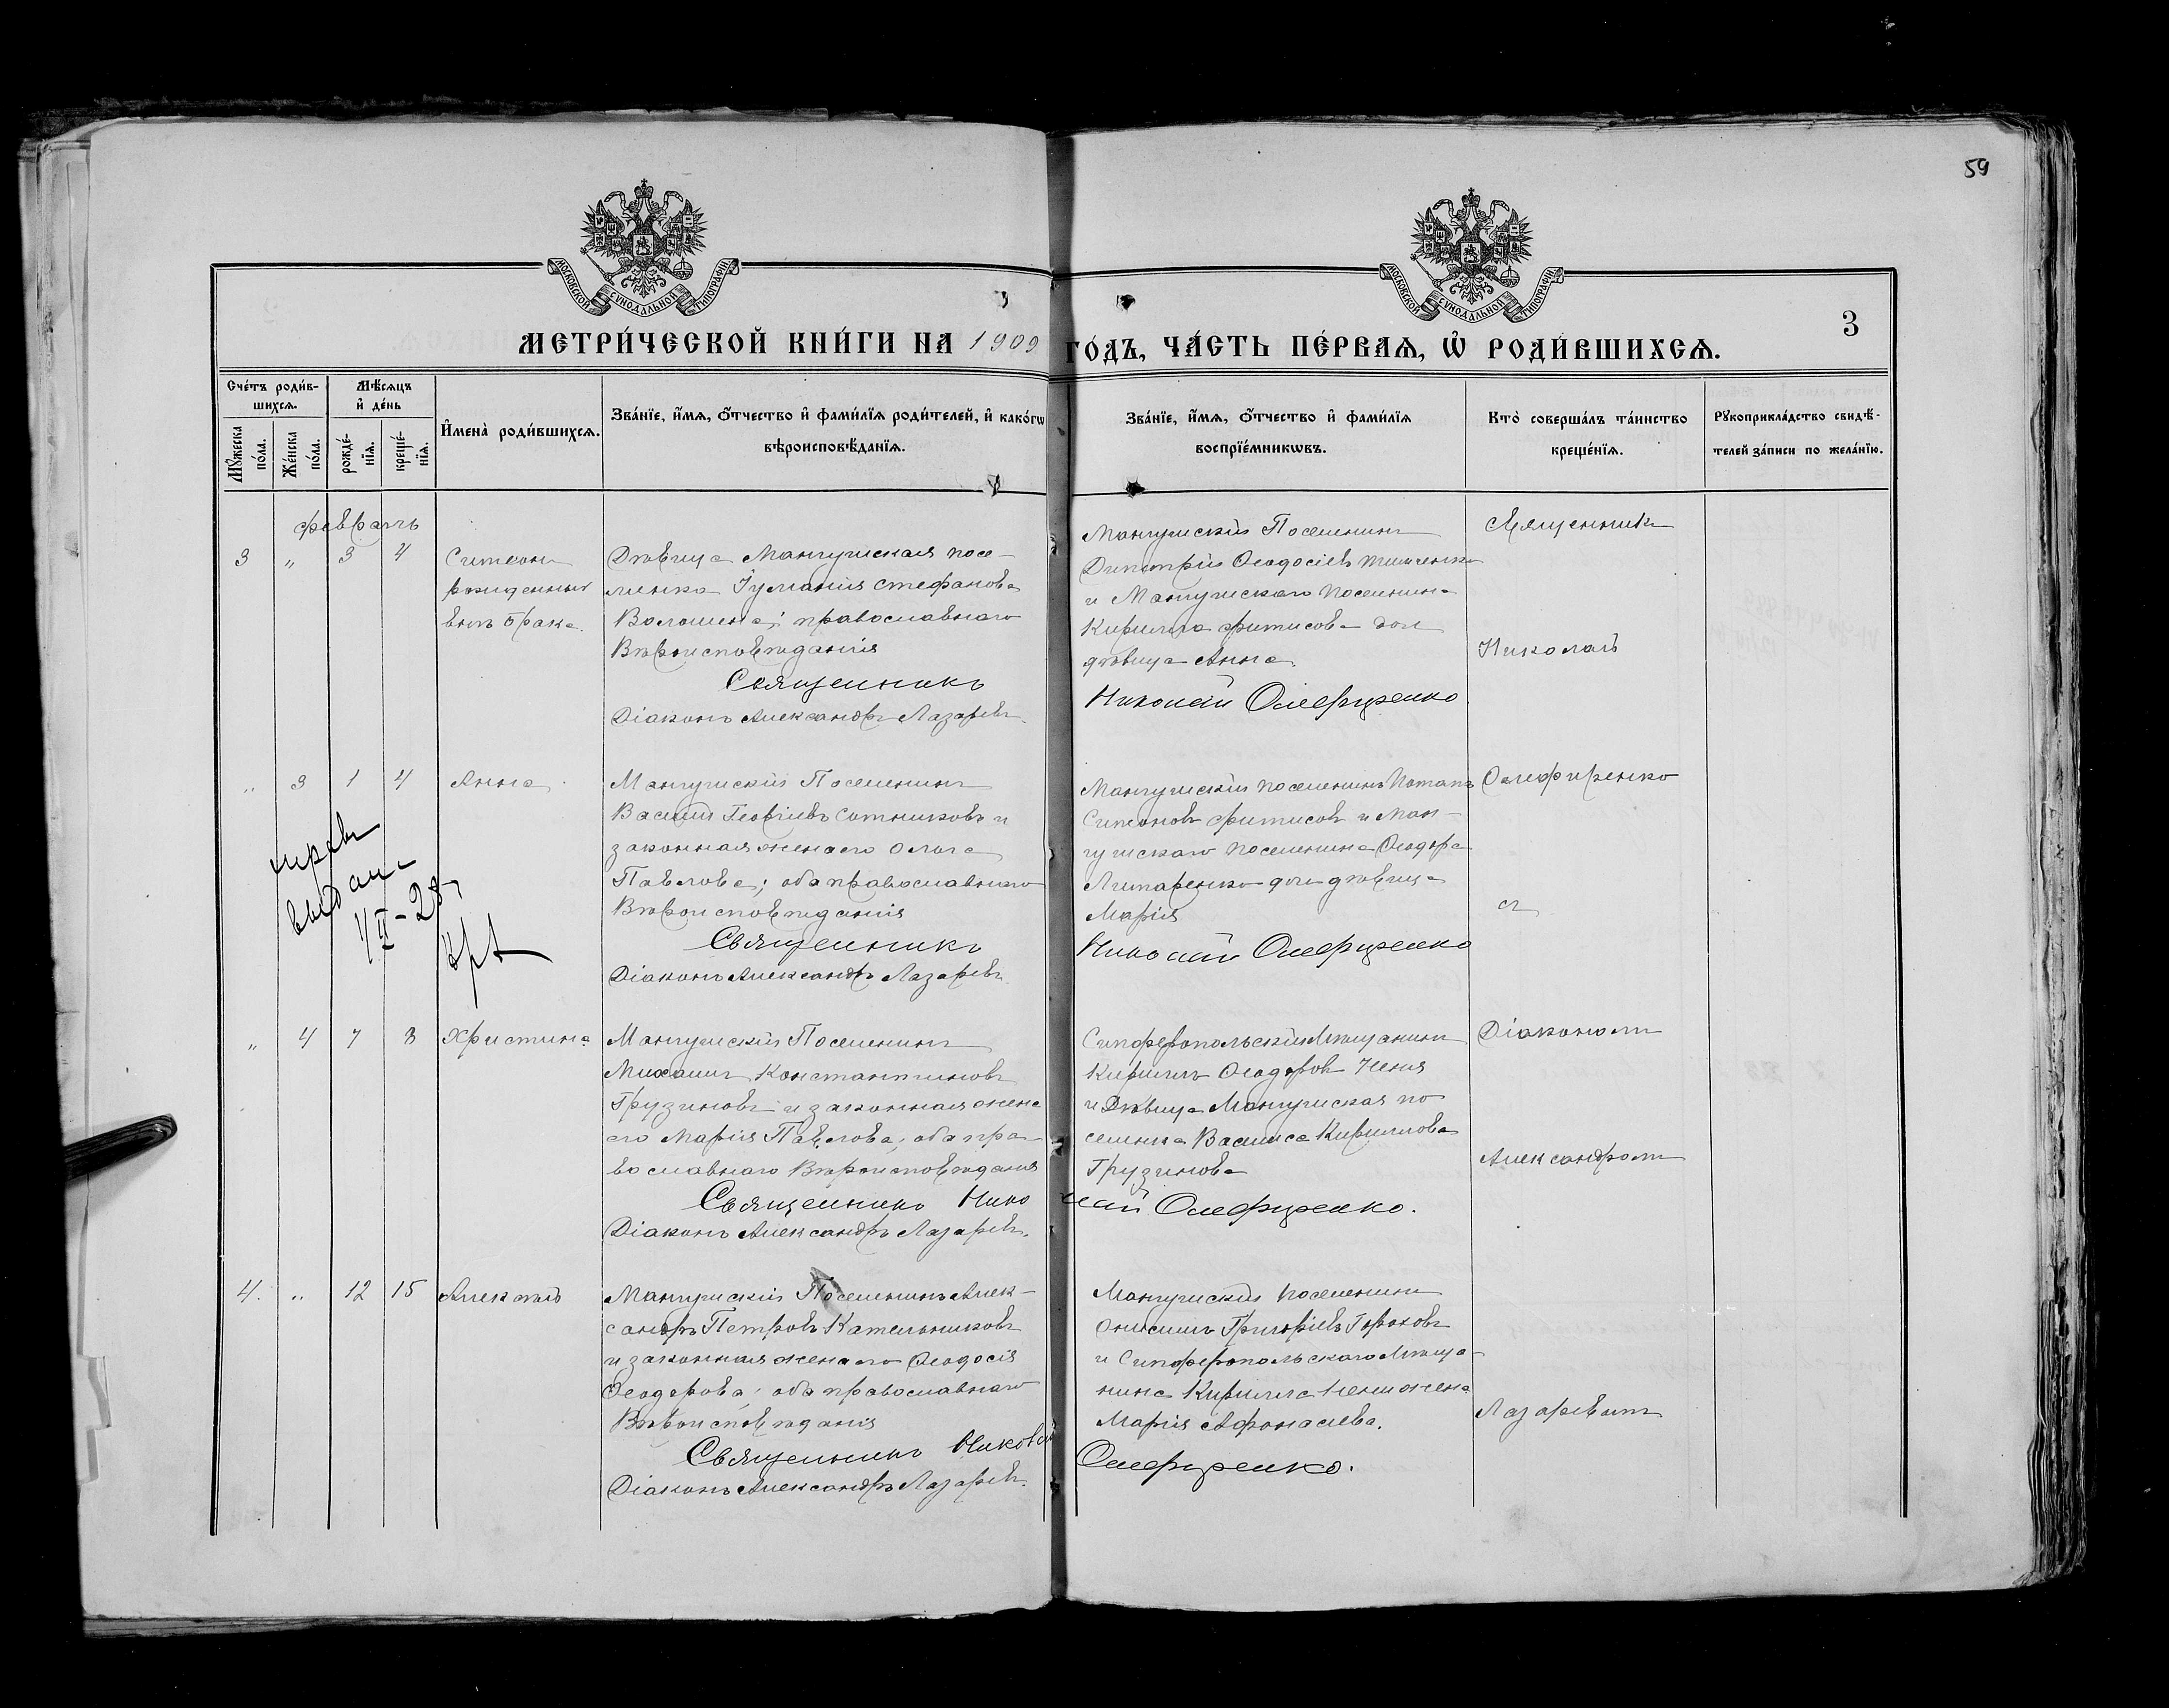 59
МОСКОВСКОЙ СѴНОДАЛЬНОЙ ТИПОГРАФІИ
МОСКОВСКОЙ СѴНОДАЛЬНОЙ ТИПОГРАФІИ
3
МЕТРИ́ЧЕСКОЙ КНИ́ГИ НА 1909 ГО́ДЪ, ЧА́СТЬ ПЕ́РВАѦ, Ѡ҆ РОДИ́ВШИХСѦ.
Сче́тъ роди́в-
шихсѧ.
Мꙋ́жеска по́ла.
Же́нска по́ла.
Мѣ́сѧцъ и҆ де́нь
рожде́-нїѧ.
креще́-нїѧ.
И҆мена̀ роди́вшихсѧ.
Зва́нїе, и҆́мѧ, ѻ҆́тчество и҆ фами́лїѧ роди́телей, и҆ како́гѡ
вѣроисповѣ́данїѧ.
Зва́нїе, и҆́мѧ, ѻ҆́тчество и҆ фами́лїѧ
воспрїе́мникѡвъ.
Кто̀ соверша́лъ та́инство
креще́нїѧ.
Рꙋкоприкла́дство свидѣ́-
телей за́писи по жела́нїю.
февраль
3 " 3 4
Симеонъ
рожденный
внѣ брака.
Дѣвица Мангушская посе-
ленка Іуліанія Стефанова
Волошина; православнаго
Вѣроисповѣданія
Священникъ
Діаконъ Александръ Лазаревъ.
Мангушскій Поселенинъ
Димитрій Ѳеодосіевъ
и Мангушскаго поселенина
Кирилла Фитисова дочь
дѣвица Анна.
Николай Олефиренко
Священник
Николай
" 3 1 4
Анна
Мангушскій Поселенинъ
Василій Георгіевъ Сотниковъ и
законная жена его Ольга
Павлова; оба православнаго
Вѣроисповѣданія
Священникъ
Діаконъ Александръ Лазаревъ
выдана
Мангушскій поселенинъ Потапъ
Симеоновъ Фитисовъ и Ман-
гушскаго поселенина Ѳеодора
Литаренко дочь дѣвица
Марія
Николай Олефиренко
Олефиренко
съ
" 4 7 8
Христина
Мангушскій Поселенинъ
Михаилъ Константиновъ
Грузиновъ и законная жена
его Марія Павлова; оба пра-
вославнаго Вѣроисповѣданія
Священникъ Николай Олефиренко.
Діаконъ Александръ Лазаревъ.
Симферопольскій Мѣщанинъ
Кириллъ Ѳеодоровъ
и Дѣвица Мангушская по
селенка Василиса Кириллова
Грузинова
Діакономъ
Александромъ
4. " 12 15
Алексѣй
Мангушскій Поселенинъ Алек-
сандръ Петровъ Котельниковъ
и законная жена его Ѳеодосія
Ѳеодорова; оба православнаго
Вѣроисповѣданія
Священникъ Николай
Діаконъ Александръ Лазаревъ.
Мангушскій поселенинъ
Онисимъ Григоріевъ Гороховъ
и Симферопольскаго Мѣща-
нина Кирилла жена
Марія Афонасіева.
Олефиренко.
Лазаревымъ